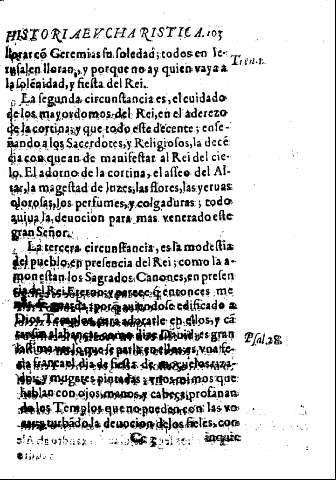 HISTORIA EVCHARISTICA. 103
llorar có Geremias su soledad; todos en Ie-
rusalen lloran, y porque no ay quien vaya a
la solénidad, y fiesta del Rei.
Tren. 1.
La segunda circunstancia es, el cuidado
de los mayordomos del Rei, en el aderezo
de la cortina, y que todo esté decente; ense-
ñando a los Sacerdotes, y Religiosos, la decé
cia con que an de manifestar al Rei del cie-
lo. El adorno de la cortina, el asseo del Al-
tar, la magestad de luzes, las flores, las yeruas
olorosas, los perfumes, y colgaduras; todo
auiua la deuocion para mas venerado este
gran Señor.
La tercera circunstancia, es la modestia
del pueblo, en presencia del Rei; como la a-
monestan los Sagrados Canones, en presen
cia del Rei Eterno; y parece q̃ entonces me
edificado a
Dios Templos para adorarle en ellos, y cá
como dize Dauid, es gran
Psal. 28.
dia de fiesta
y mugeres pintadas
hablan con ojos, manos, y cabeza, profanan
do los Templos, que no pueden con las vo
zes, turbãdo la deuocion de los fieles, con
inquie